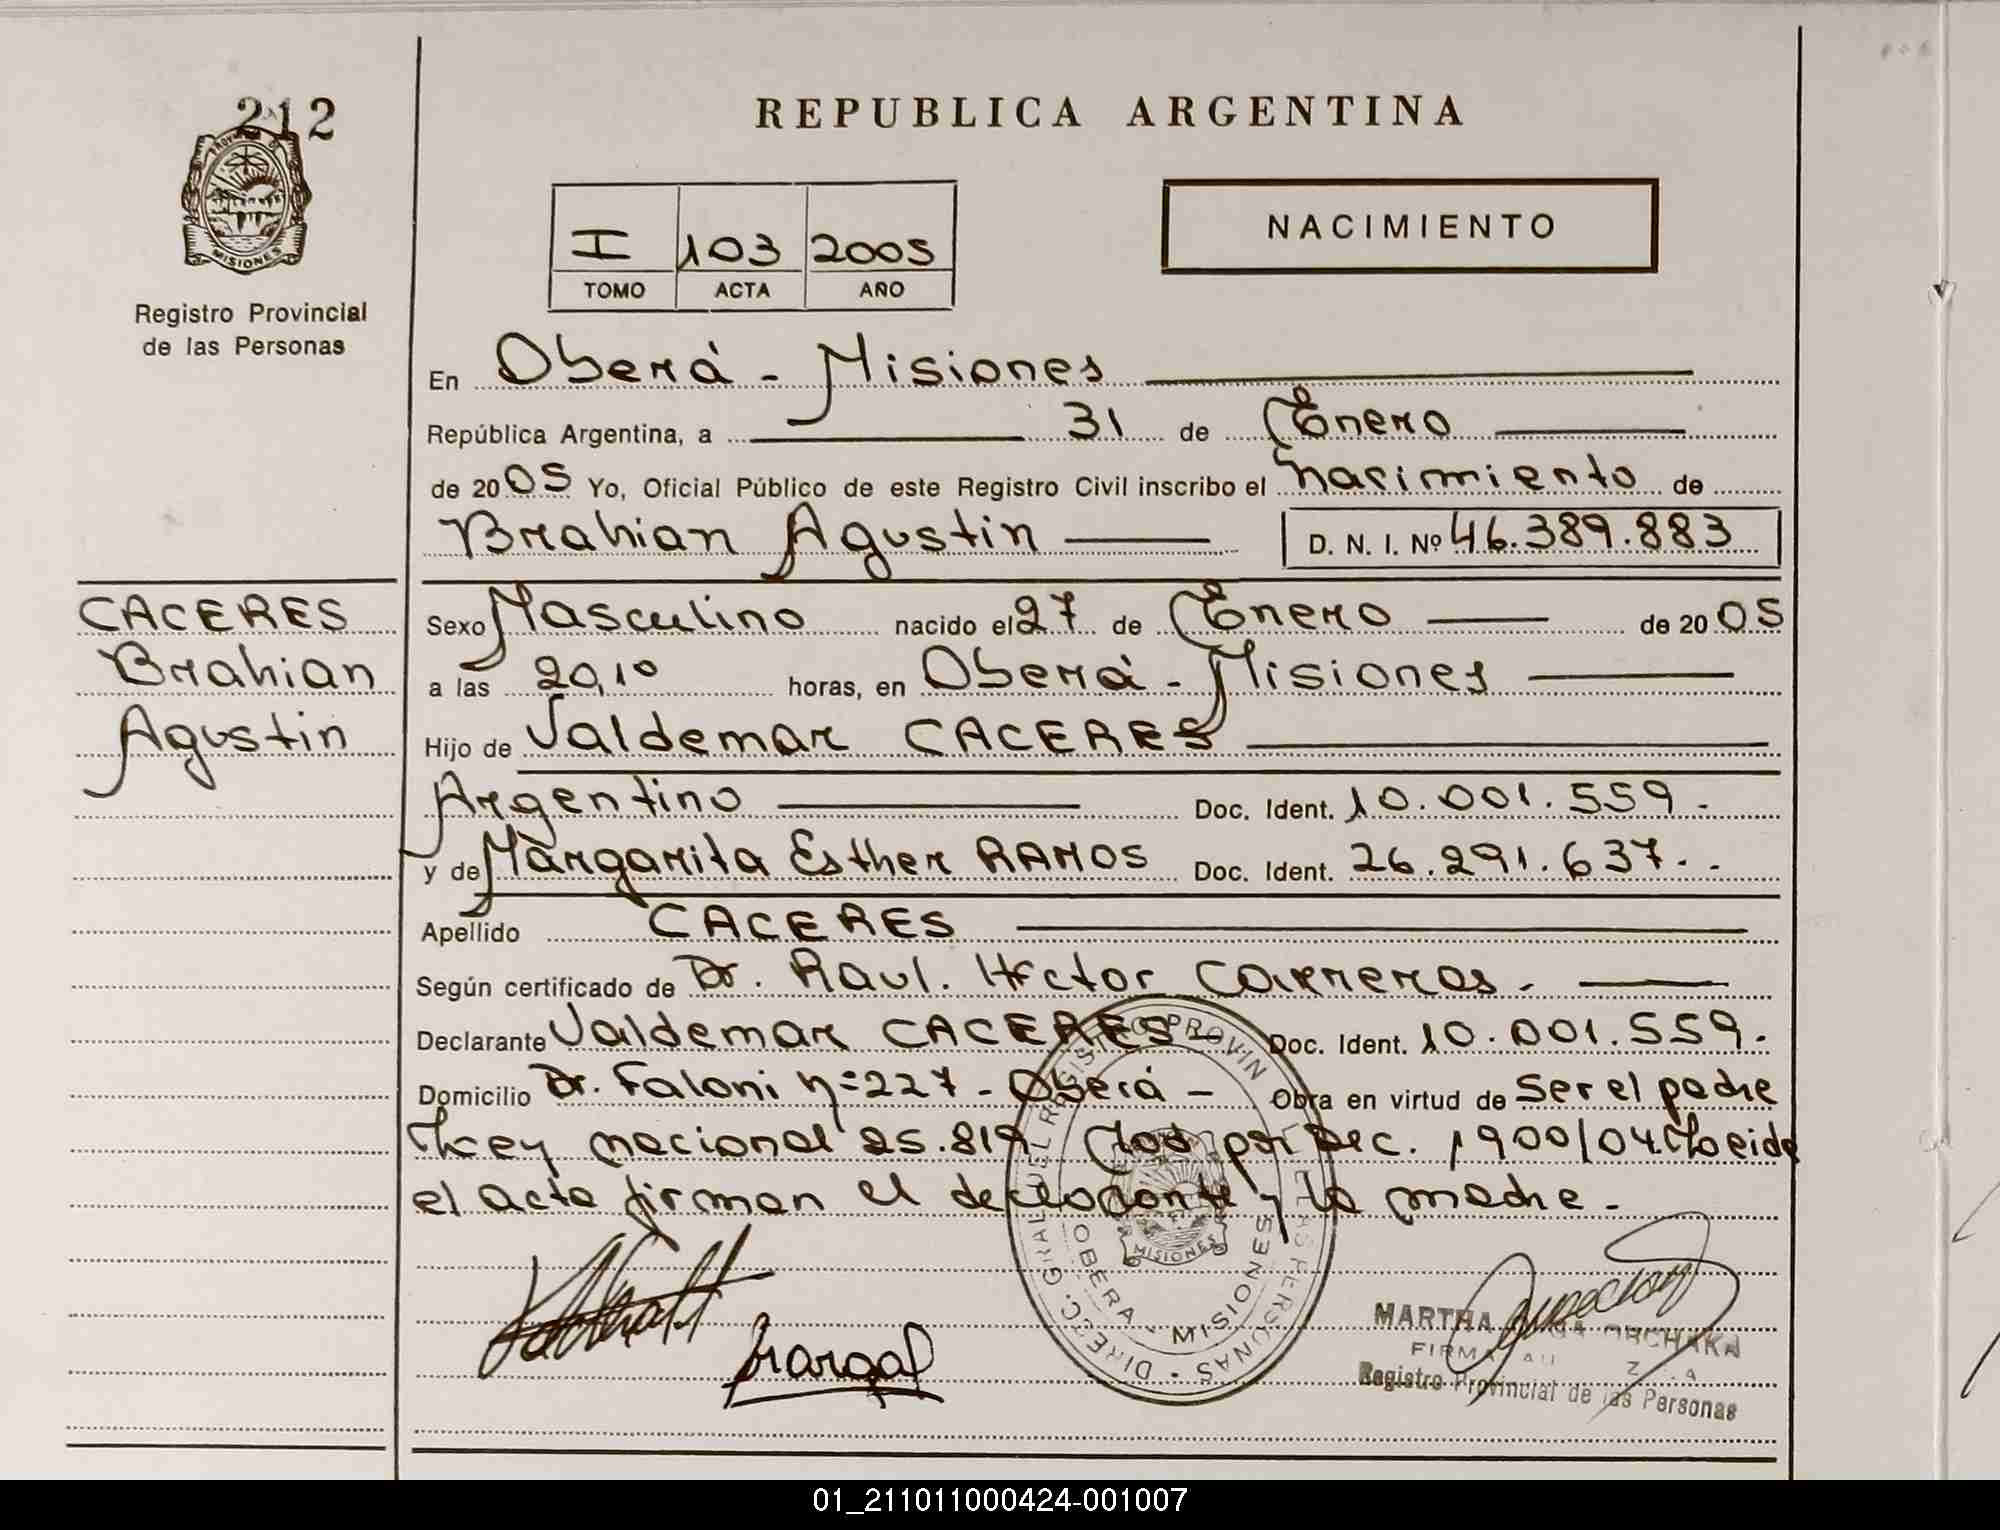 212
REPUBLICA ARGENTINA
PROVINCIA DE
MISIONES
Registro Provincial
de las Personas
I 103 2005
TOMO ACTA AÑO
NACIMIENTO
En Oberá - Misiones
República Argentina, a 31 de Enero
de 2005 Yo, Oficial Público de este Registro Civil inscribo el nacimiento de
Brahian Agustin D. N. I. Nº 46.389.883
CACERES
Brahian
Agustin
Sexo Masculino nacido el 27 de Enero de 2005
a las 20,10 horas, en Oberá - Misiones
Hijo de Valdemar CACERES
Argentino Doc. Ident. 10.001.559.-
y de Margarita Esther RAMOS Doc. Ident. 26.291.637.-
Apellido CACERES
Según certificado de Dr. Raul. Hector Carreras.
Declarante Valdemar CACERES - Doc. Ident. 10.001.559.
Domicilio Dr. Faloni nº 227 - Oberá - Obra en virtud de ser el padre
Ley nacional 25.819 por Dec. 1900/04. Leida
el acta firman el declarante y la madre.-
DIREC. GRAL. DEL REGISTRO PROVIN DE LAS PERSONAS
OBERA - MISIONES
MISIONES
MARTHA ORCHAKA
FIRMA AU
Registro Provincial de las Personas
01_211011000424-001007